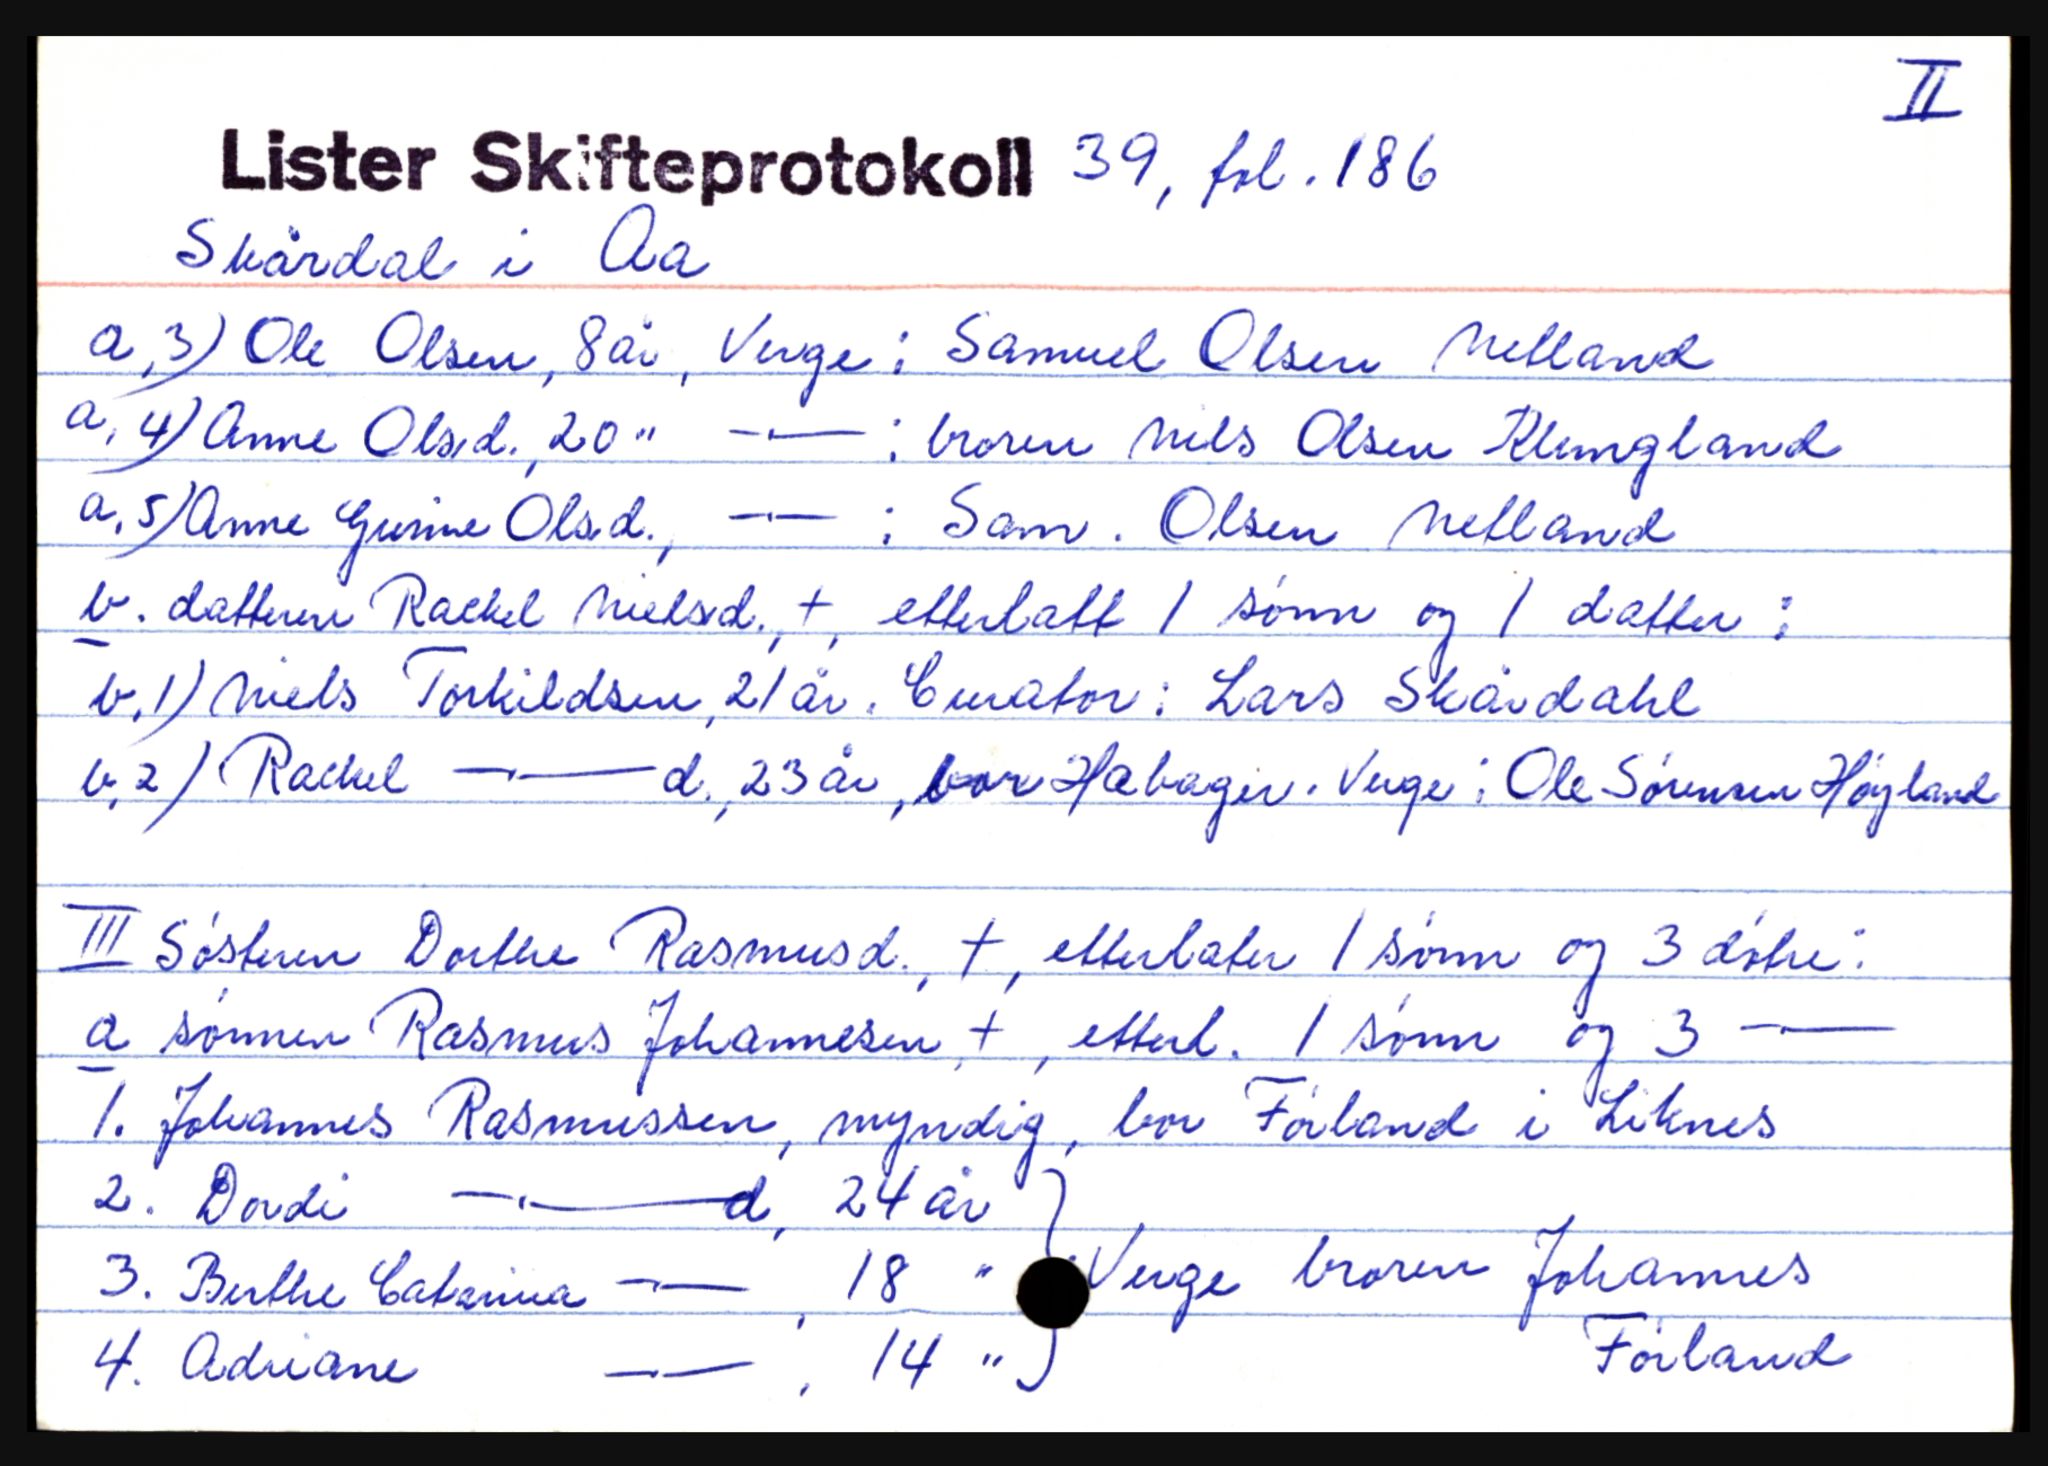 II
Lister Skifteprotokoll 39, fol. 186
Skårdal i Aa
a,3) Ole Olsen, 8 år, Verge: Samuel Olsen Netland
a,4) Anne Olsd., 20 " —"— : broren Nils Olsen Klungland
a,5) Anne Gurine Olsd., —"— : Sam. Olsen Netland
b. datteren Rackel Nielsd., †, etterlatt 1 sønn og 1 datter:
b,1) Niels Torkildsen, 21 år. Curator: Lars Skårdahl
b,2) Rackel —"— d., 23 år, bor Habager. Verge: Ole Sørensen Høyland
III Søsteren Dorthe Rasmusd., †, etterlater 1 sønn og 3 døtre:
a sønnen Rasmus Johannesen, †, etterl. 1 sønn og 3 —"—
1. Johannes Rasmussen, myndig, bor Førland i Liknes
2. Dordi —"— d, 24 år
3. Berthe Catarina —"—, 18 " Verge broren Johannes
4. Adriane —"—, 14 " Førland